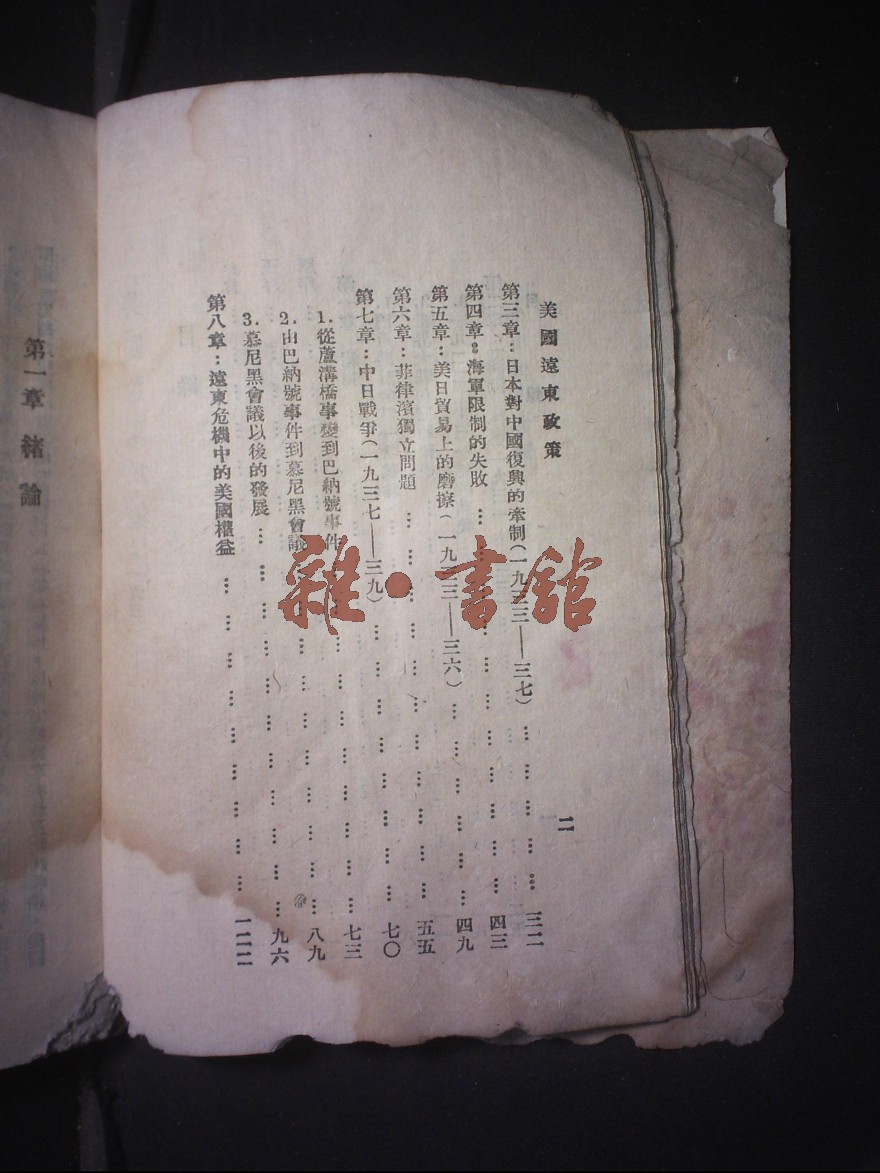 美國遠東政策
二
第三章：日本對中國復興的牽制(一九三三——三七) … … … … … 三二
第四章：海軍限制的失敗 … … … … … … … … … … 四三
第五章：美日貿易上的磨擦(一九三三——三六) … … … … … … 四九
第六章：菲律濱獨立問題 … … … … … … … … … … … 五五
第七章：中日戰爭(一九三七——三九) … … … … … … … … 七〇
1.從蘆溝橋事變到巴納號事件 … … … … … … … … … 七三
2.由巴納號事件到慕尼黑會議 … … … … … … … … … 八九
3.慕尼黑會議以後的發展 … … … … … … … … … … … 九六
第八章：遠東危機中的美國權益 … … … … … … … … … 一二二
第一章 緒論
雜·書舘